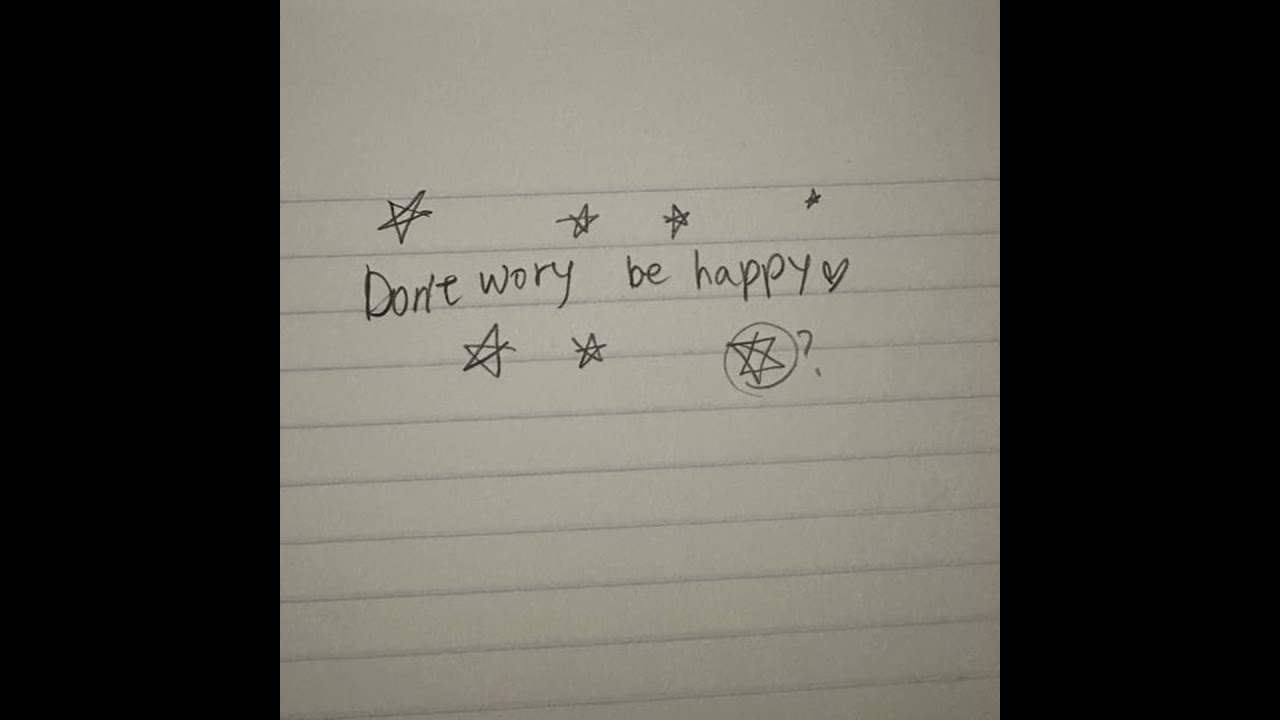 Don't wory be happy♡
?